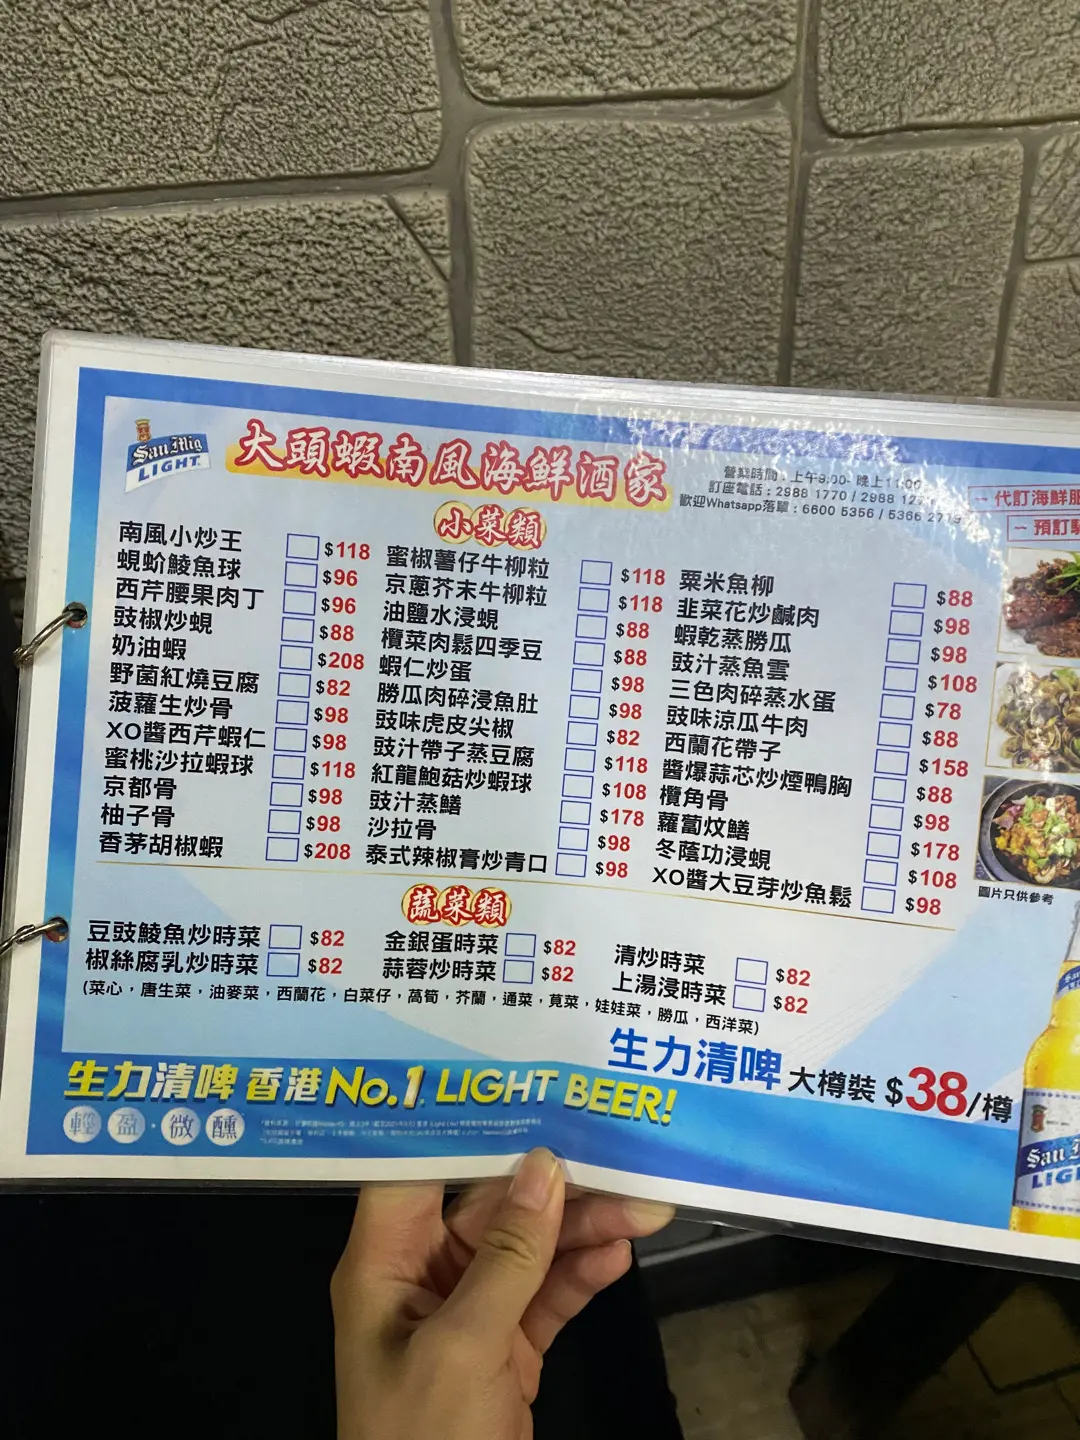 San Mig
LIGHT
大頭蝦南風海鮮酒家
營業時間：上午9:00- 晚上11:00
訂座電話：2988 1770 / 2988
歡迎Whatsapp落單：6600 5356 / 5366 2719
代訂海鮮
預訂
小菜類
南風小炒王 $118
蜆蚧鯪魚球 $96
西芹腰果肉丁 $96
豉椒炒蜆 $88
奶油蝦 $208
野菌紅燒豆腐 $82
菠蘿生炒骨 $98
XO醬西芹蝦仁 $98
蜜桃沙拉蝦球 $118
京都骨 $98
柚子骨 $98
香茅胡椒蝦 $208
蜜椒薯仔牛柳粒 $118
京蔥芥末牛柳粒 $118
油鹽水浸蜆 $88
欖菜肉鬆四季豆 $88
蝦仁炒蛋 $98
勝瓜肉碎浸魚肚 $98
豉味虎皮尖椒 $82
豉汁帶子蒸豆腐 $118
紅龍鮑菇炒蝦球 $108
豉汁蒸鱔 $178
沙拉骨 $98
泰式辣椒膏炒青口 $98
粟米魚柳 $88
韭菜花炒鹹肉 $98
蝦乾蒸勝瓜 $98
豉汁蒸魚雲 $108
三色肉碎蒸水蛋 $78
豉味涼瓜牛肉 $88
西蘭花帶子 $158
醬爆蒜芯炒煙鴨胸 $88
欖角骨 $98
蘿蔔炆鱔 $178
冬蔭功浸蜆 $108
XO醬大豆芽炒魚鬆 $98
圖片只供參考
蔬菜類
豆豉鯪魚炒時菜 $82
椒絲腐乳炒時菜 $82
金銀蛋時菜 $82
蒜蓉炒時菜 $82
清炒時菜 $82
上湯浸時菜 $82
(菜心，唐生菜，油麥菜，西蘭花，白菜仔，萵筍，芥蘭，通菜，莧菜，娃娃菜，勝瓜，西洋菜)
生力清啤 大樽裝 $38/樽
生力清啤 香港 No.1 LIGHT BEER!
輕盈·微醺
San
LIG